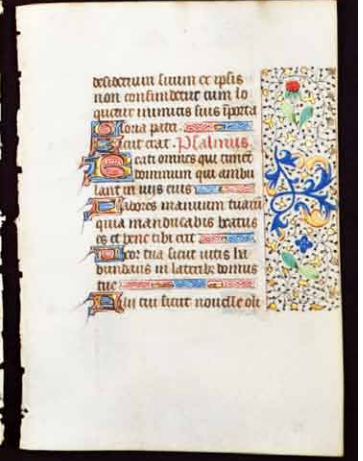 desiderium suum ex ipsis
non confundetur cum lo
quetur inimicis suis ī porta
Gloria patri.
Sicut erat. Psalmus.
Beati omnes qui timēt
dominum qui ambu
lant in viis eius
Labores manuum tuarū
quia manducabis beatus
es et bene tibi erit
Uxor tua sicut vitis ha
bundans in laterib; domus
tue
Filii tui sicut nouelle oli